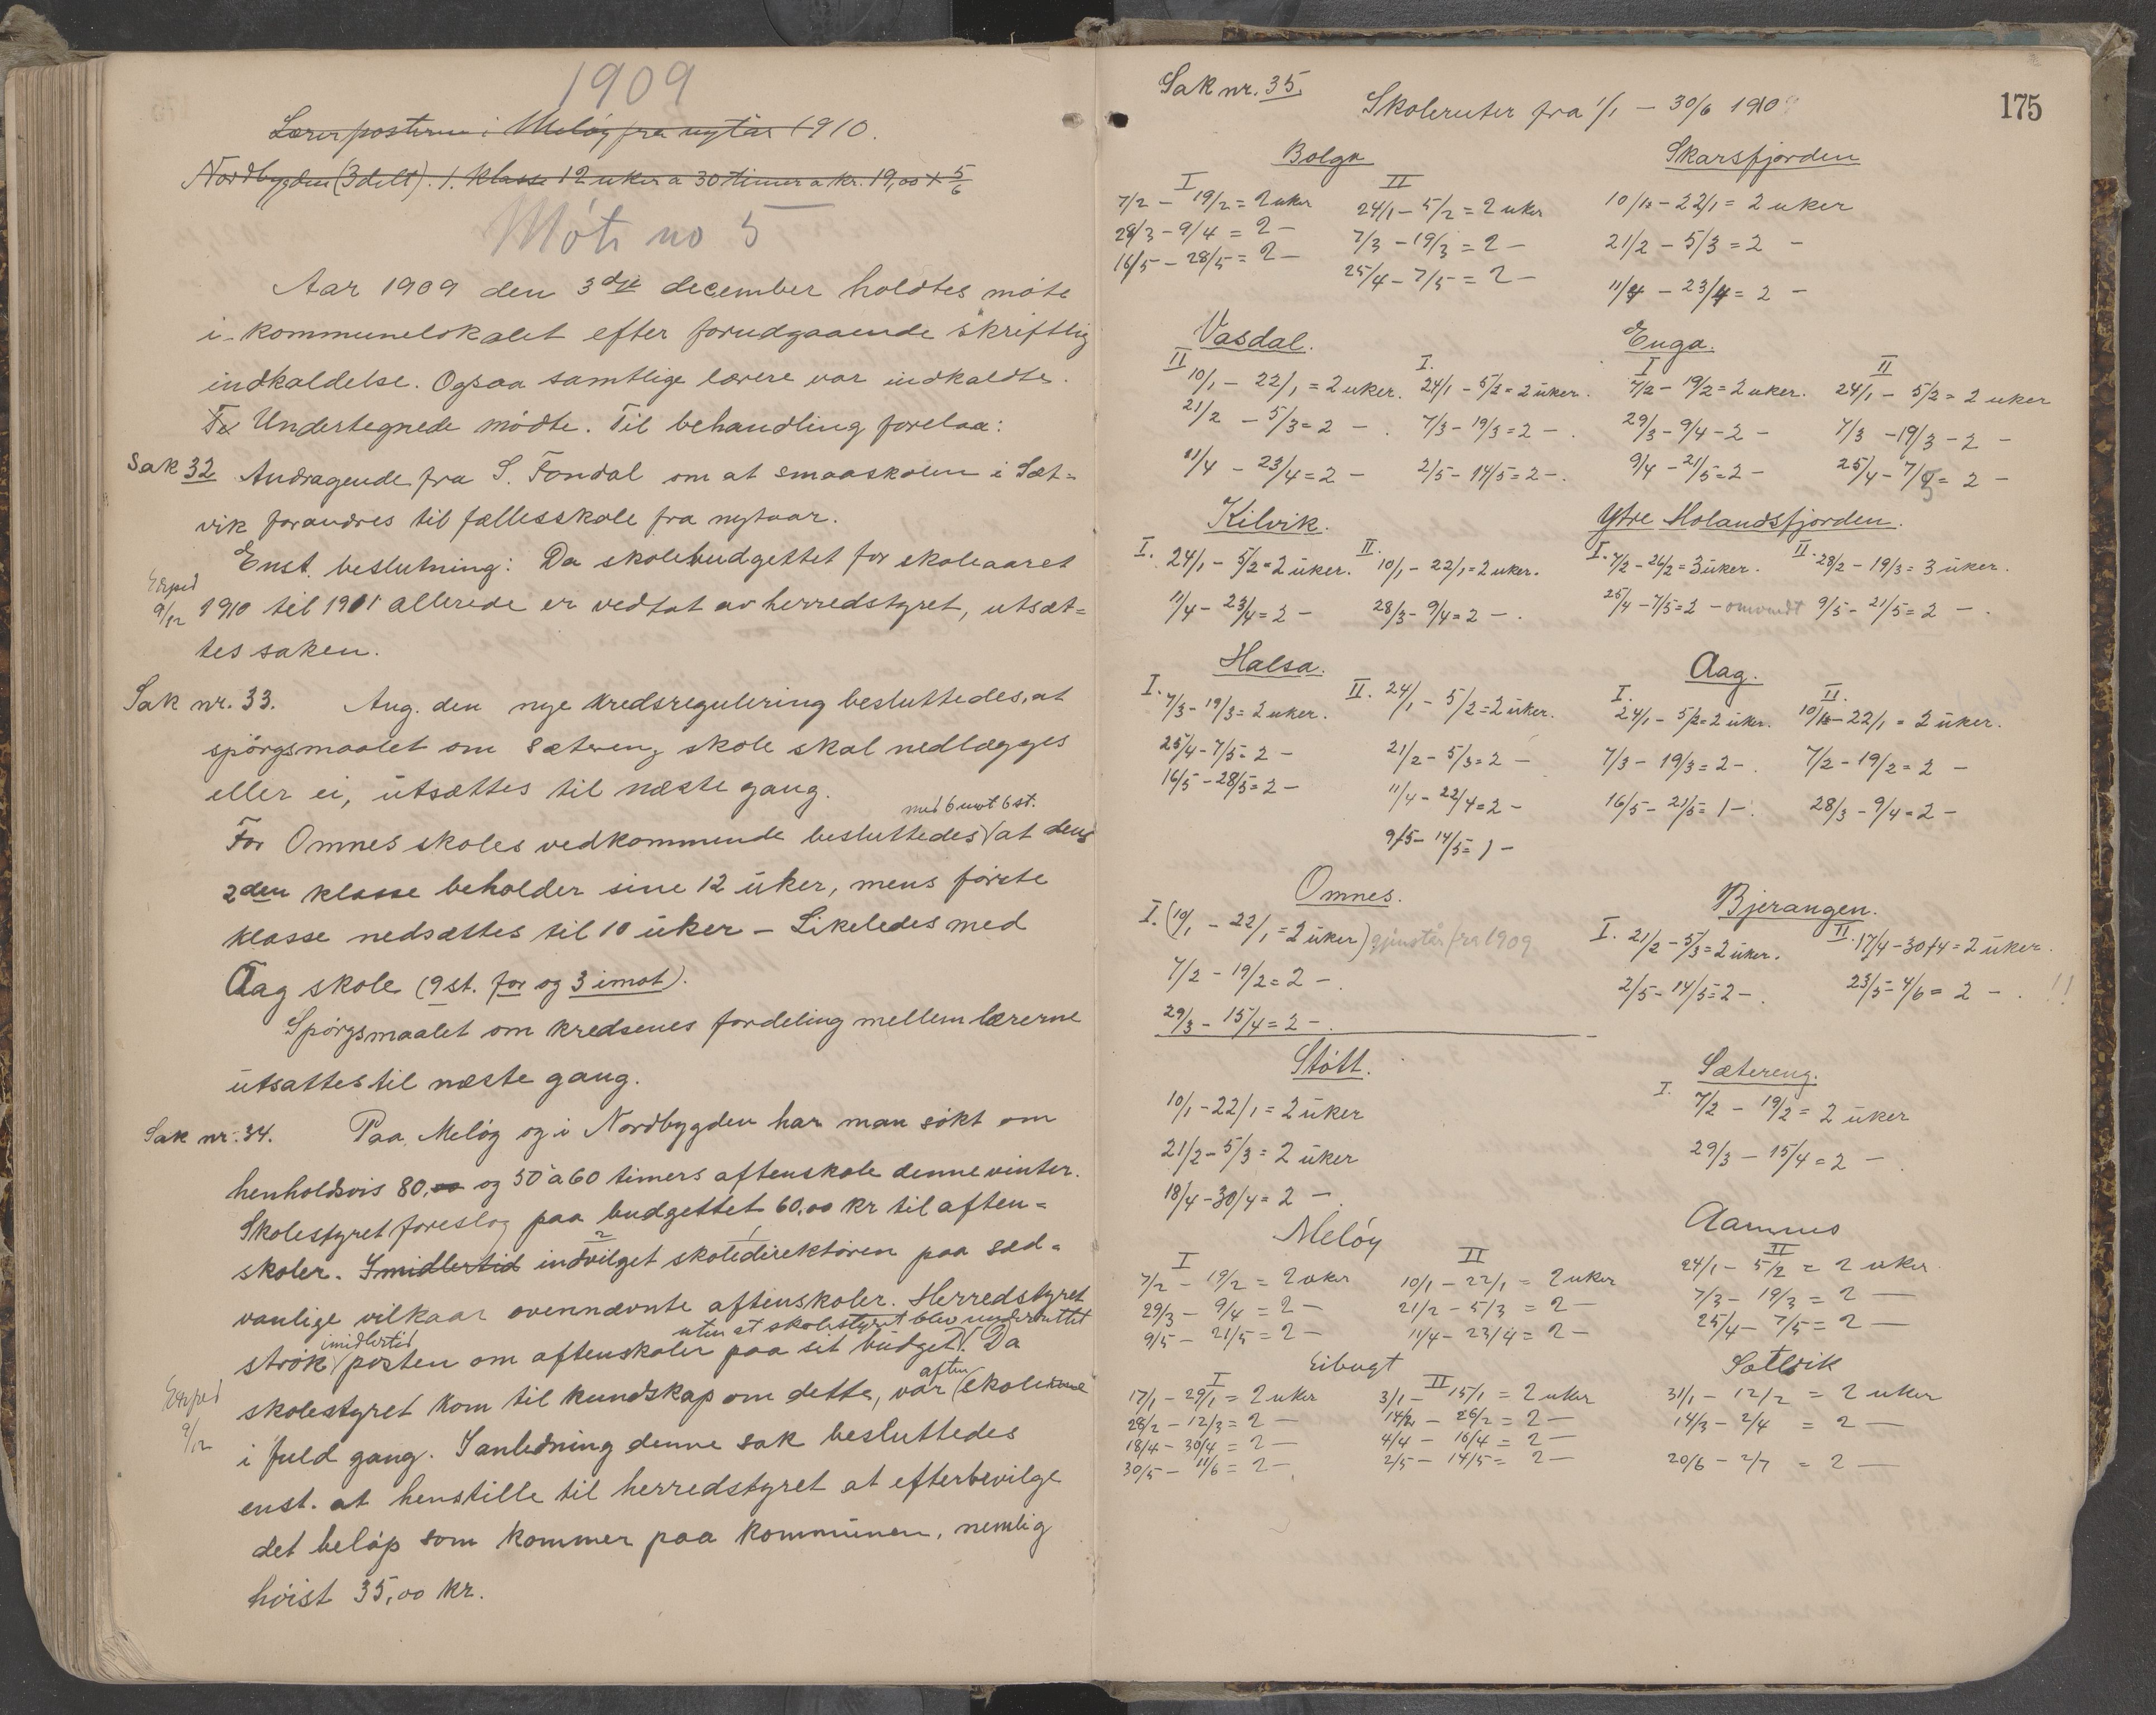 1909
Lærerposterne i Meløy fra nytår 1910.
Nordbygden (3delt). 1. Klasse 12 uker a 30 timer a kr. 19,00 + 5/6
Møte no 5
Aar 1909 den 3die december holdtes møte
i kommunelokalet efter forudgaaende skriftlig
indkaldelse. Ogsaa samtlige lærere var indkaldte.
Undertegnede mødte. Til behandling forelaa:
Sak 32 Andragende fra S. Fondal om at smaaskolen i Sæt-
vik forandres til fællesskole fra nytaar.
Enst. beslutning: Da skolebudgettet for skoleaaret
Exped 9/12 1910 til 1911 allerede er vedtat av herredstyret, utsæt-
tes saken.
Sak nr. 33. Ang. den nye kredsregulering besluttedes, at
spørgsmaalet om Sætereng skole skal nedlægges
eller ei, utsættes til næste gang.
med 6 mot 6 st.
For Omnes skoles vedkommende besluttedes at dens
2den klasse beholder sine 12 uker, mens første
klasse nedsættes til 10 uker – Likeledes med
Aag skole (9 st. for og 3 imot).
Spørgsmaalet om kredsenes fordeling mellem lærerne
utsattes til næste gang.
Sak nr. 34. Paa Meløy og i Nordbygden har man søkt om
henholdsvis 80,00 og 50 à 60 timers aftenskole denne vinter.
Skolestyret foreslog paa budgettet 60,00 kr til aften-
skoler. Imidlertid indvilget skoledirektøren paa sæd-
vanlige vilkaar ovennævnte aftenskoler. Herredstyret
uten at skolestyret blev underrettet
imidlertid
strøk posten om aftenskoler paa sit budget. Da
aften
skolestyret kom til kundskap om dette, var skolerne
Exped 9/12
i fuld gang. I anledning denne sak besluttedes
enst. at henstille til herredstyret at efterbevilge
det beløp som kommer paa kommunen, nemlig
høist 35,00 kr.
Sak nr. 35.
175
Skoleruter fra 1/1 – 30/6 1910
Bolga
I II
7/2 – 19/2 = 2 uker 24/1 – 5/2 = 2 uker
28/3 – 9/4 = 2 – 7/3 – 19/3 = 2 –
16/5 – 28/5 = 2 – 25/4 – 7/5 = 2 –
Skarsfjorden
10/1 – 22/1 = 2 uker
21/2 – 5/3 = 2 –
11/4 – 23/4 = 2 –
Vasdal.
II I.
10/1 – 22/1 = 2 uker. 24/1 – 5/2 = 2 uker.
21/2 – 5/3 = 2 – . 7/3 – 19/3 = 2 – .
11/4 – 23/4 = 2 – 2/5 – 14/5 = 2 – .
Enga.
I II
7/2 – 19/2 = 2 uker. 24/1 – 5/2 = 2 uker
29/3 – 9/4 – 2 – 7/3 – 19/3 – 2 –
9/4 – 21/5 = 2 – 25/4 – 7/5 = 2 –
Kilvik.
I. 24/1 – 5/2 = 2 uker. II. 10/1 – 22/1 = 2 uker.
11/4 – 23/4 = 2 – 28/3 – 9/4 = 2 – .
Ytre Holandsfjorden.
I. 7/2 – 26/2 = 3 uker. II. 28/2 – 19/3 = 3 uker.
25/4 – 7/5 = 2 – omvendt 9/5 – 21/5 = 2 – .
Halsa.
I. 7/3 – 19/3 = 2 uker. II. 24/1 – 5/2 = 2 uker.
25/4 – 7/5 = 2 – 21/2 – 5/3 = 2 –
16/5 – 28/5 = 2 – 11/4 – 22/4 = 2 –
9/5 – 14/5 = 1 –
Aag.
I. II.
24/1 – 5/2 = 2 uker. 10/1 – 22/1 = 2 uker.
7/3 – 19/3 = 2 – . 7/2 – 19/2 = 2 –
16/5 – 21/5 = 1 – . 28/3 – 9/4 = 2 –
Omnes.
I. (10/1 – 22/1 = 2 uker) gjenstår fra 1909
7/2 – 19/2 = 2 – .
29/3 – 15/4 = 2 – .
Bjerangen.
I. 21/2 – 5/3 = 2 uker. II. 17/4 – 30/4 = 2 uker.
2/5 – 14/5 = 2 – . 23/5 – 4/6 = 2 – . !!
Støtt.
10/1 – 22/1 = 2 uker
21/2 – 5/3 = 2 uker
18/4 – 30/4 = 2 – .
Sætereng.
I. 7/2 – 19/2 = 2 uker
29/3 – 15/4 = 2 – .
Meløy
I II
7/2 – 19/2 = 2 uker 10/1 – 22/1 = 2 uker
29/3 – 9/4 = 2 – 21/2 – 5/3 = 2 –
9/5 – 21/5 = 2 – 11/4 – 23/4 = 2 –
Aamnes
II
24/1 – 5/2 = 2 uker
7/3 – 19/3 = 2 –
25/4 – 7/5 = 2 –
Eibugt
I II
17/1 – 29/1 = 2 uker 3/1 – 15/1 = 2 uker
28/2 – 12/3 = 2 – 14/2 – 26/2 = 2 –
18/4 – 30/4 = 2 – 4/4 – 16/4 = 2 –
30/5 – 11/6 = 2 – 2/5 – 14/5 = 2 –
Sætvik
31/1 – 12/2 = 2 uker
14/3 – 2/4 = 2 –
20/6 – 2/7 = 2 –